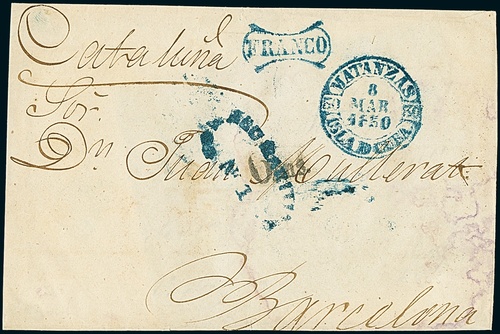 Cataluña
FRANCO
MATANZAS
8
MAR
1850
ISLA DE CUBA
Sör.
Dn Juan
Barcelona